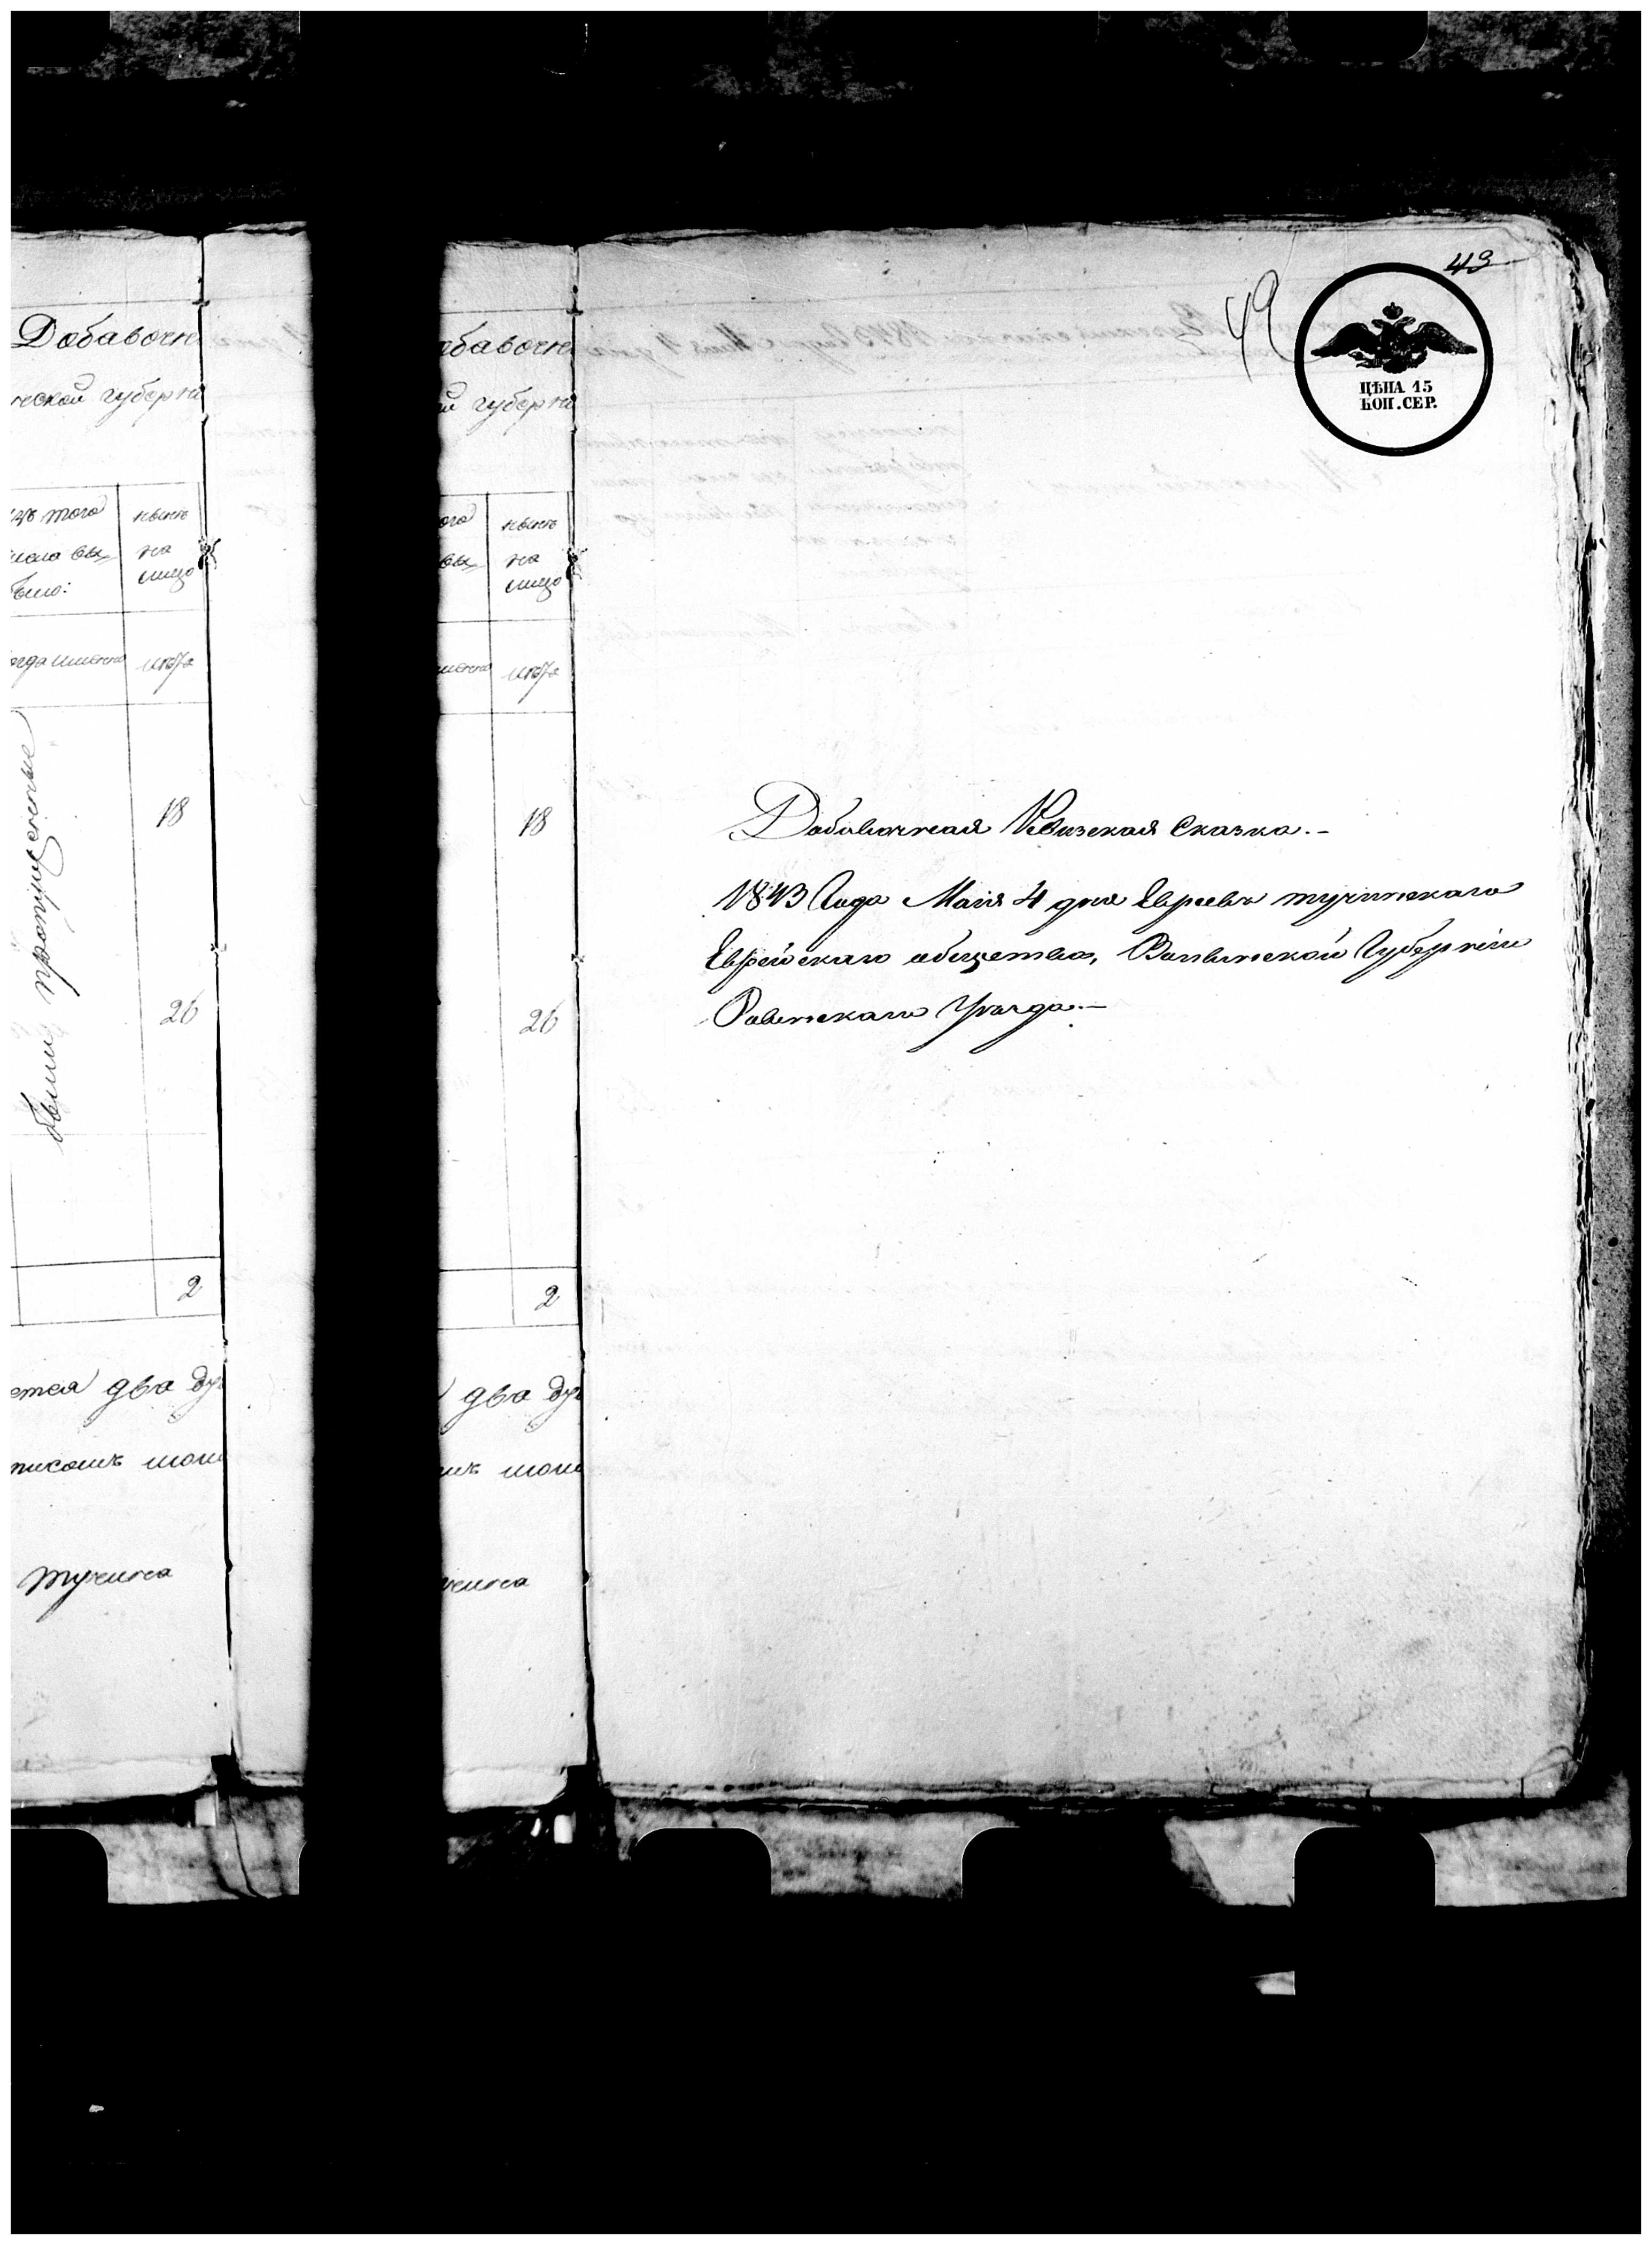 Добавочн
ческой губерні
изъ того
числа вы=
было:
нынѣ
на
лицо
когда именно
лѣта
были пропущенные
18
26
2
ется два ду
Тучина
бавочн
й губерні
ого
вы=
нынѣ
на
лицо
именно
лѣта
18
26
2
два ду
чина
49
49
ЦѢНА 15
КОП. СЕР.
Добавочная Ревизская Сказка.-
1843 Года Маія 4 дня Евреевъ тучинскаго
Еврейскаго общества, Волынской Губерніи
Ровенскаго Уѣзда.-